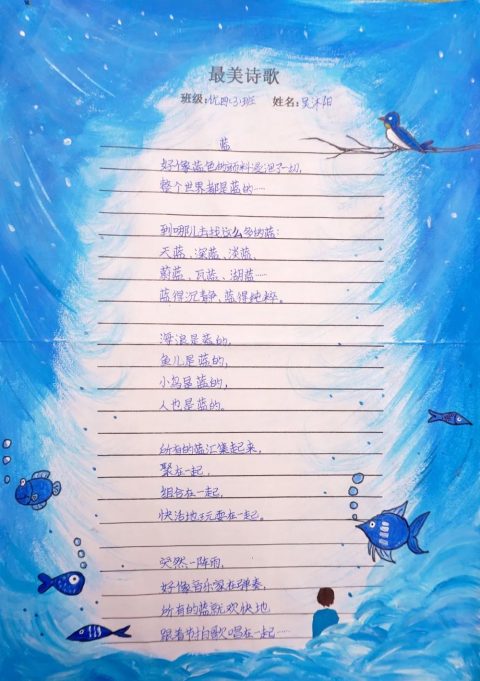 最美诗歌
班级:优四(3)班 姓名:吴沐阳
蓝
好像蓝色的颜料浸泡了一切,
整个世界都是蓝的……
到哪儿去找这么多的蓝:
天蓝、深蓝、淡蓝、
蔚蓝、瓦蓝、湖蓝……
蓝得沉静,蓝得纯粹。
海浪是蓝的,
鱼儿是蓝的,
小鸟是蓝的,
人也是蓝的。
所有的蓝汇集起来,
聚在一起,
组合在一起,
快活地玩耍在一起。
突然一阵雨,
好像音乐家在弹奏,
所有的蓝就欢快地
跟着节拍歌唱在一起……